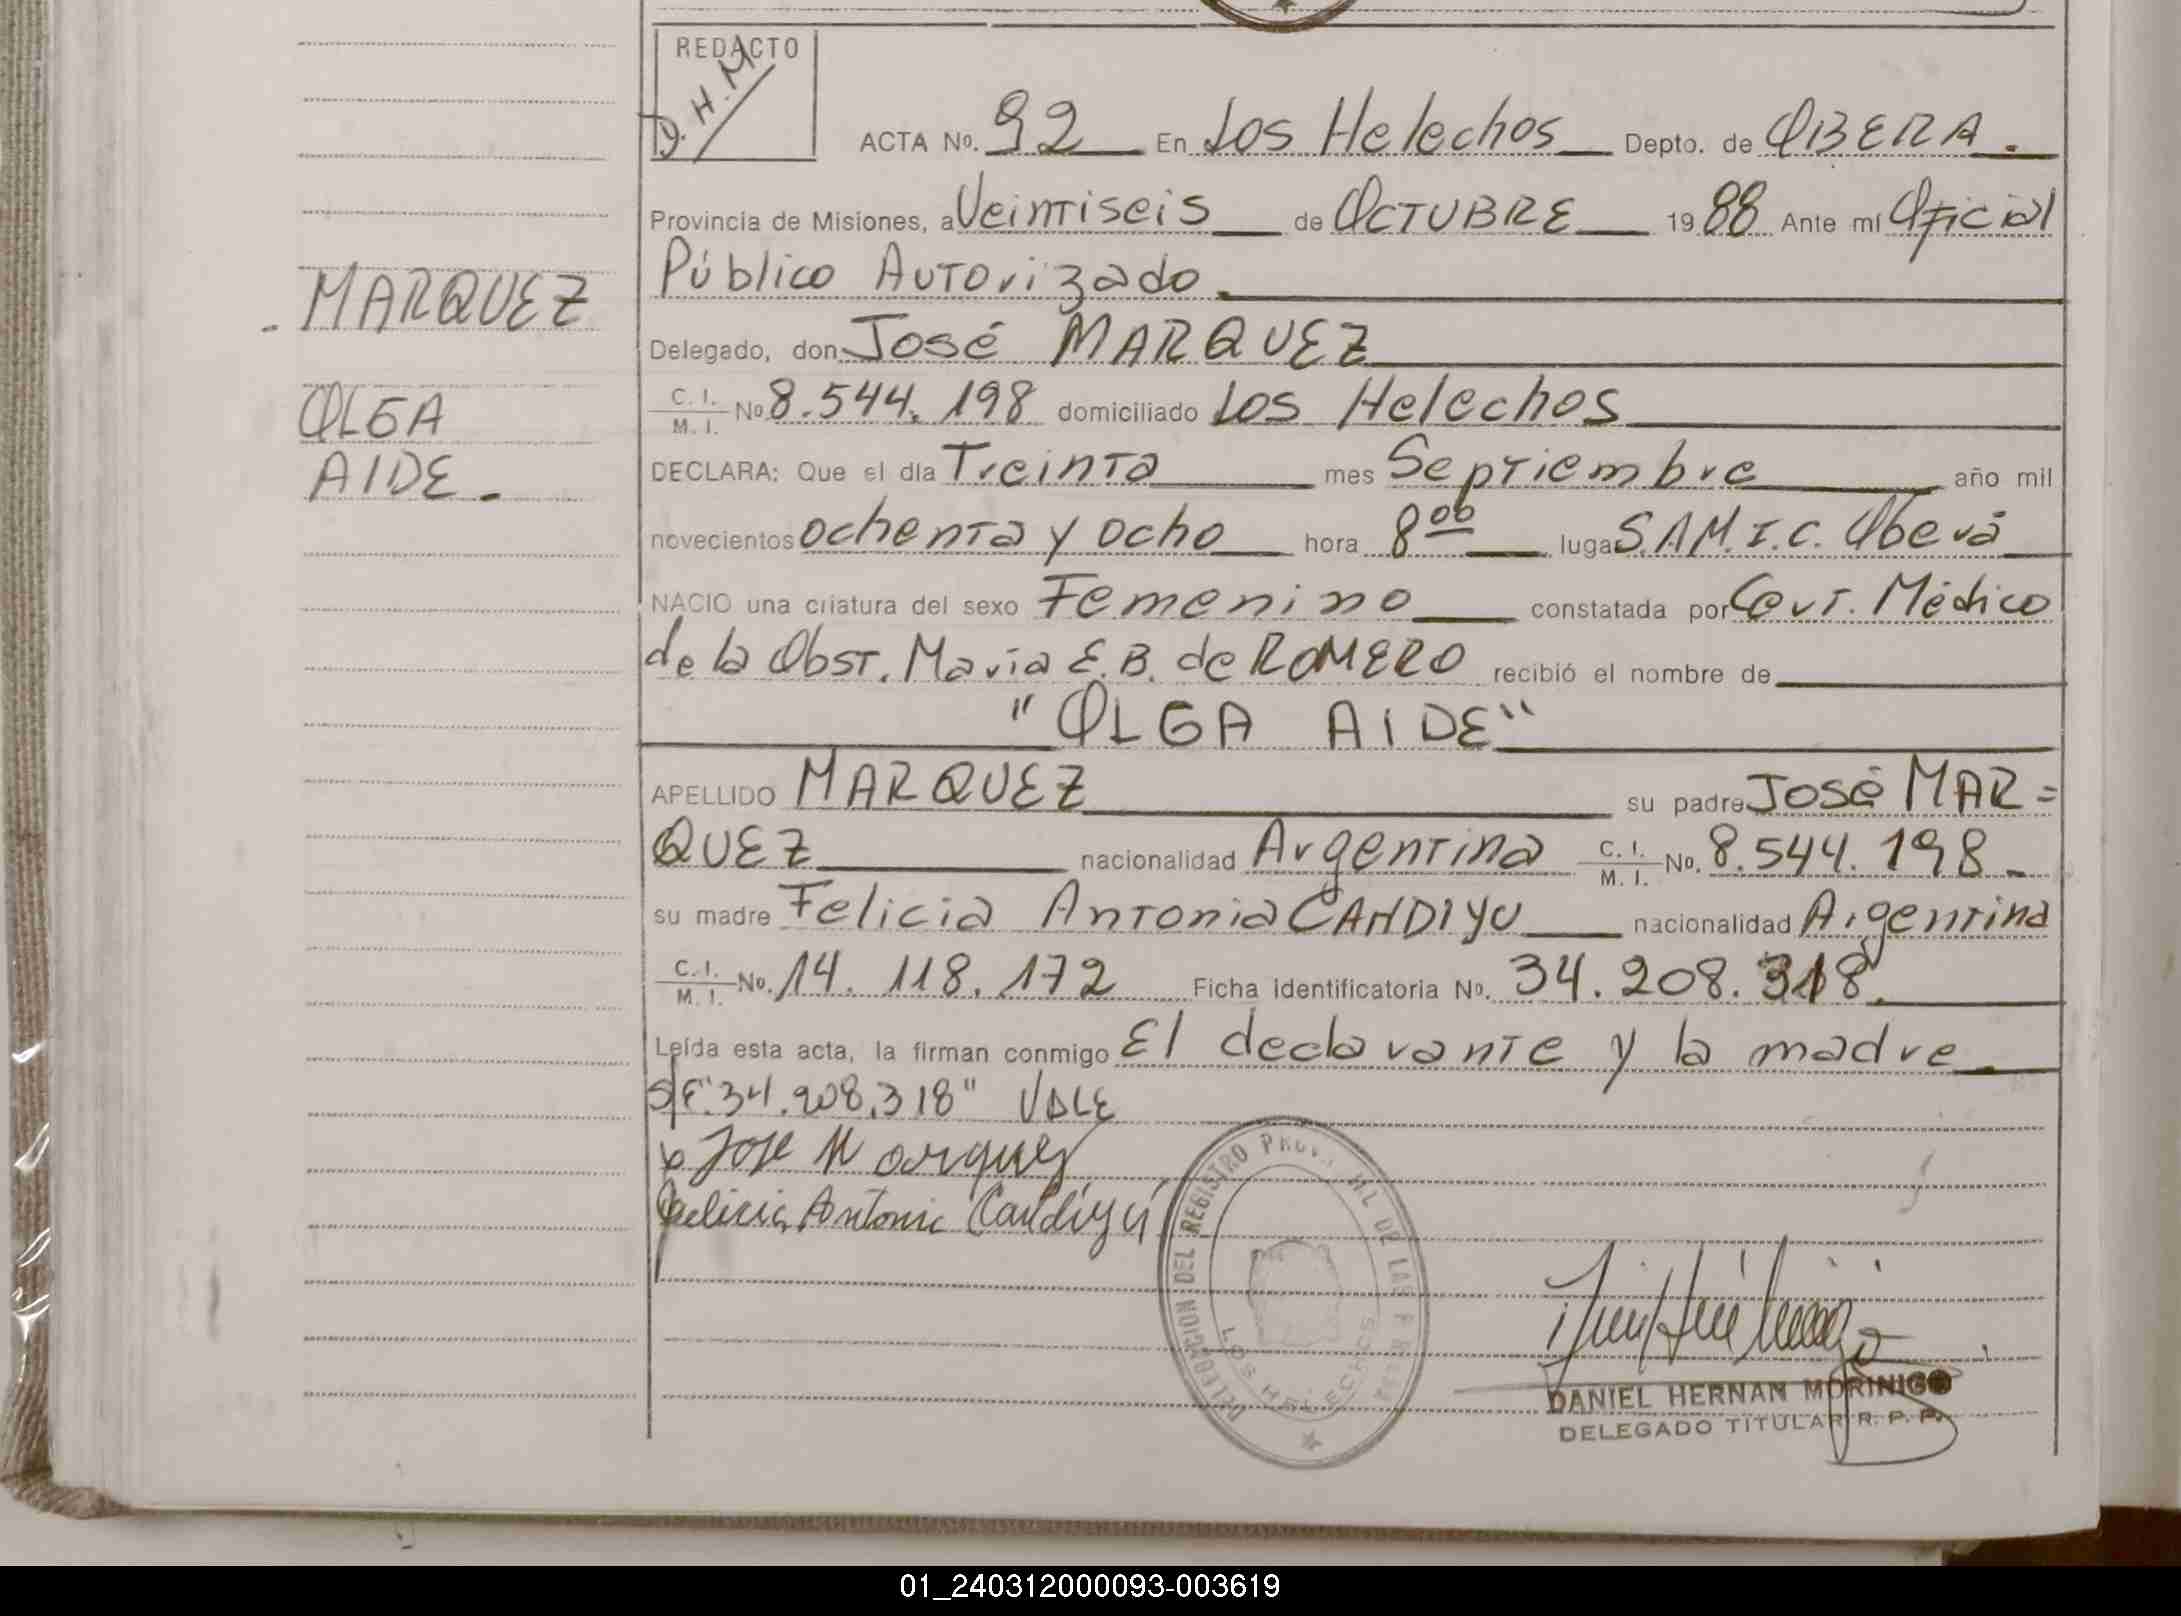 REDACTO
D.H.M
ACTA Nº. 92 En Los Helechos Depto. de OBERA.
Provincia de Misiones, a Veintiseis de OCTUBRE 1988 Ante mí Oficial
Público Autorizado.
Delegado, don José MARQUEZ
C. I. / M. I. Nº 8.544.198 domiciliado Los Helechos
DECLARA: Que el día Treinta mes Septiembre año mil
novecientos ochenta y ocho hora 8 00 lugar S.A.M.I.C. Oberá
NACIO una criatura del sexo Femenino constatada por Cert. Médico
de la Obst. Maria E. B. de ROMERO recibió el nombre de
"OLGA AIDE"
APELLIDO MARQUEZ su padre José MAR=
QUEZ nacionalidad Argentina C. I. / M. I. Nº. 8.544.198-
su madre Felicia Antonia CANDIYU nacionalidad Argentina
C. I. / M. I. Nº. 14.118.172 Ficha identificatoria Nº. 34.208.318.
Leída esta acta, la firman conmigo El declarante y la madre.
S/E "34.208.318" VALE
Jose Marquez
Felicia Antonia Candiyú
- MARQUEZ
OLGA
AIDE.
DELEGACION DEL REGISTRO PROVINCIAL DE LAS PERS
LOS HELECHOS
DANIEL HERNAN MORINIGO
DELEGADO TITULAR R. P. P.
01_240312000093-003619